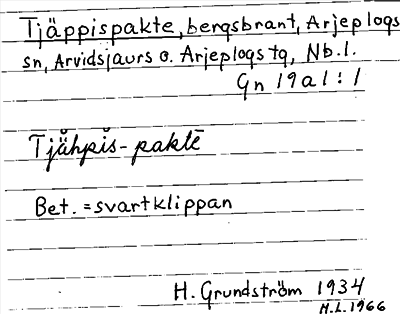 Tjäppispakte, bergsbrant, Arjeplogs
sn, Arvidsjaurs o. Arjeplogs tg, Nb.l.
Gn 19a1:1
Tjåhpis-paktē
Bet. = svartklippan
H. Grundström 1934
H.L. 1966